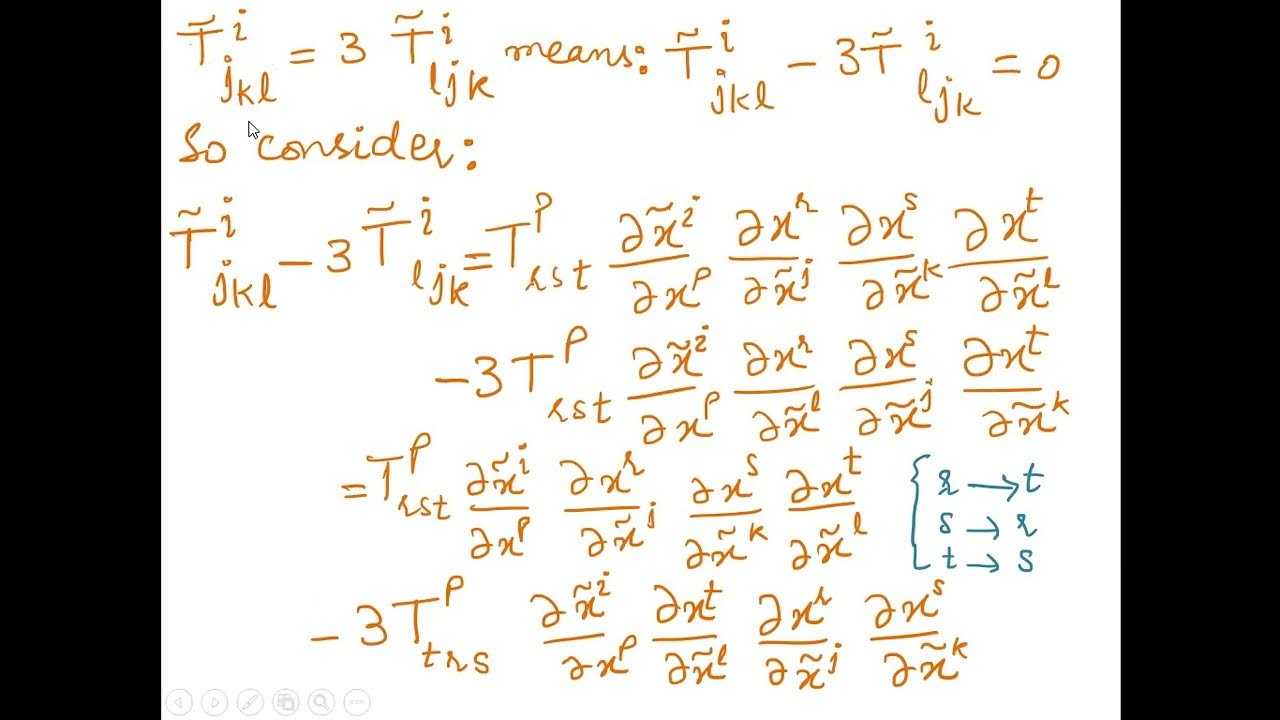 T̃^i_{jkl} = 3 T̃^i_{ljk} means: T̃^i_{jkl} - 3T̃^i_{ljk} = 0
So consider:
T̃^i_{jkl} - 3 T̃^i_{ljk} = T^p_{rst} ∂x̃^i/∂x^p ∂x^r/∂x̃^j ∂x^s/∂x̃^k ∂x^t/∂x̃^l
- 3 T^p_{rst} ∂x̃^i/∂x^p ∂x^r/∂x̃^l ∂x^s/∂x̃^j ∂x^t/∂x̃^k
= T^p_{rst} ∂x̃^i/∂x^p ∂x^r/∂x̃^j ∂x^s/∂x̃^k ∂x^t/∂x̃^l
{ r → t
s → r
t → s
- 3 T^p_{trs} ∂x̃^i/∂x^p ∂x^t/∂x̃^l ∂x^r/∂x̃^j ∂x^s/∂x̃^k